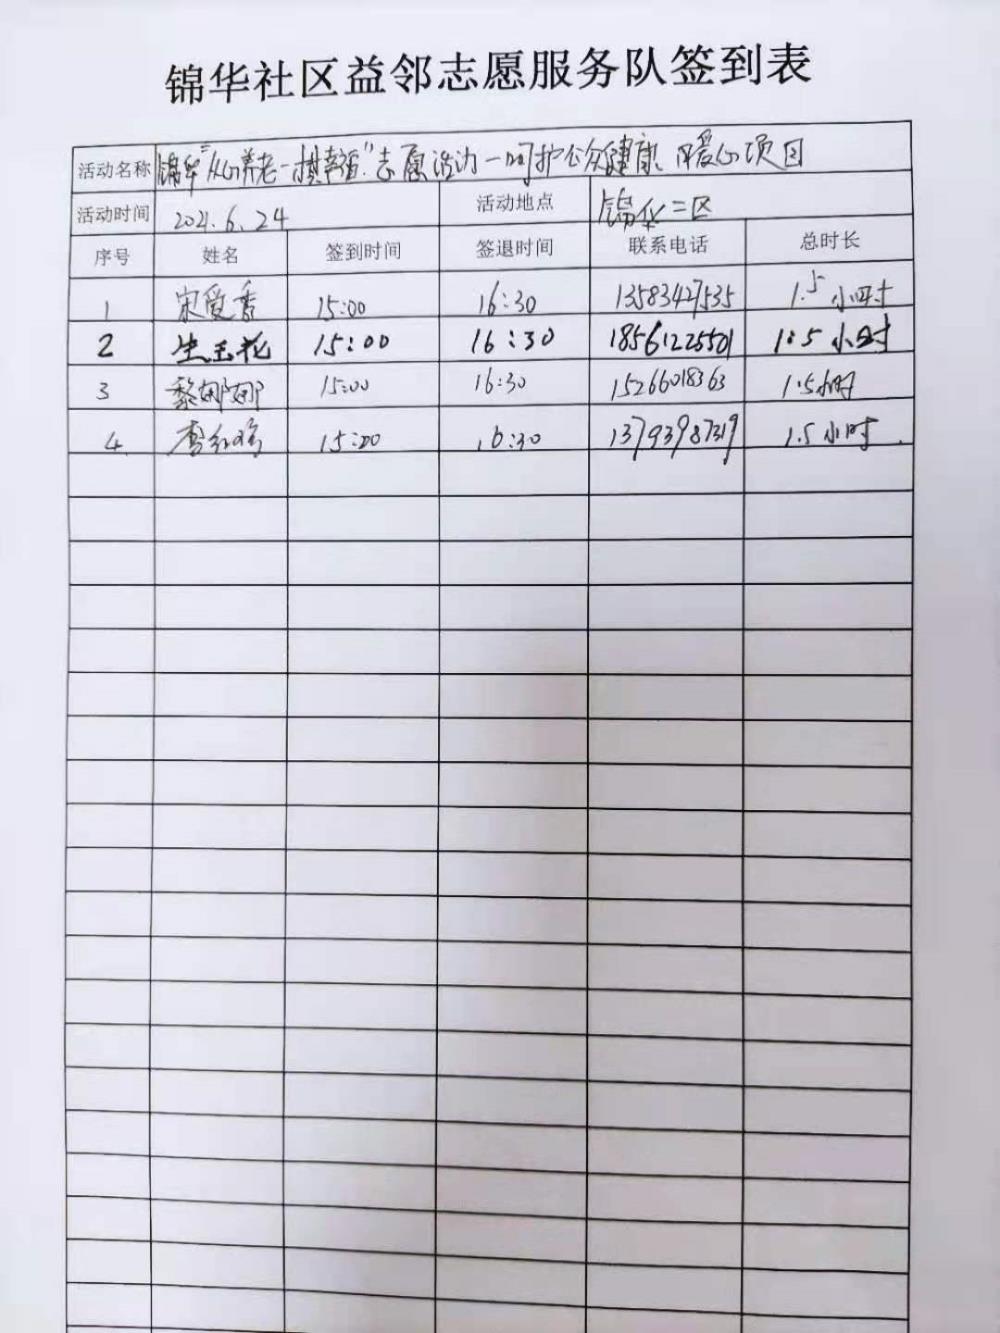 锦华社区益邻志愿服务队签到表
活动名称 锦华"从心养老一携幸福"志愿活动一呵护公众健康 暖爱心项目
活动时间 2021.6.24 活动地点 锦华二区
序号 姓名 签到时间 签退时间 联系电话 总时长
1 宋爱香 15:00 16:30 13583427535 1.5小时
2 生玉花 15:00 16:30 18561225501 1.5小时
3 黎娜娜 15:00 16:30 15266018363 1.5小时
4. 李红 15:00 16:30 13793987319 1.5小时.